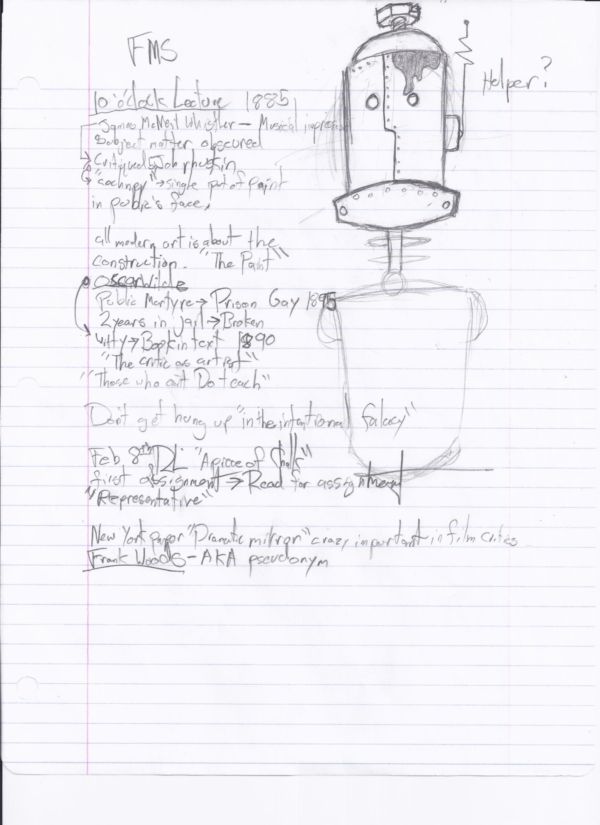 FMS
Helper?
10 o'clock Lecture 1885
James McNeil Whistler - Musical impress
Subject matter obscured
Critiqued by John rhuskin
"cochney" → single pot of paint
in public's face,
all modern art is about the
construction. "The Paint"
OscarWilde
Public Martyre → Prison Gay 1895
2 years in jail → Broken
witty → Book in text 1890
"The critic as artist"
"Those who cant Do teach"
Dont get hung up "in the intentional falacy"
Feb 8th "A piece of Chalk"
first assignment → Read for assignment
"Representative"
New York paper "Dramatic mirror" crazy important in film critics
Frank Woods - AKA pseudonym